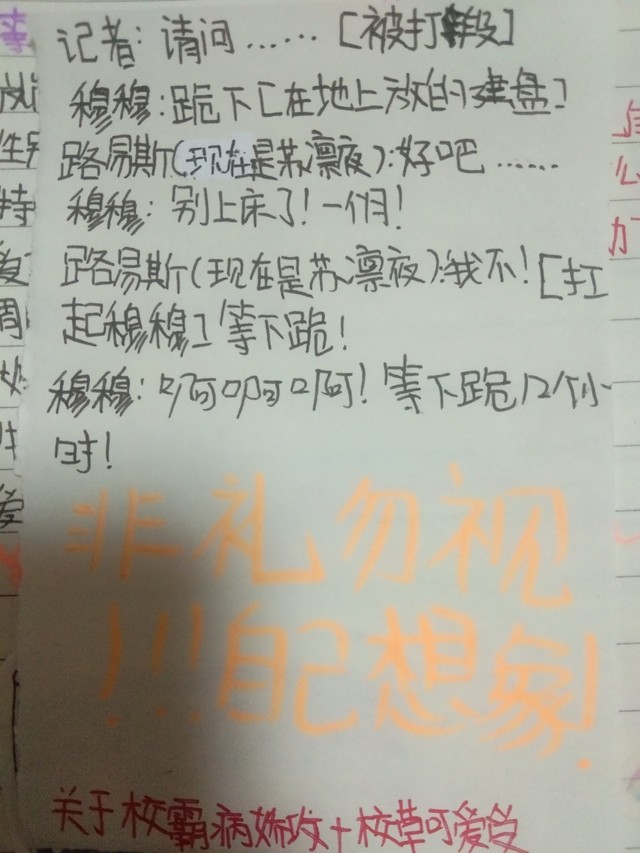 记者：请问……［被打断］
穆穆：跪下［在地上放的键盘］
路易斯（现在是苏凛夜）：好吧……
穆穆：别上床了！一个月！
路易斯（现在是苏凛夜）：我不！［扛
起穆穆］等下跪！
穆穆：啊啊啊！等下跪12个小
时！
非礼勿视
！！！自己想象！
关于校霸病娇攻＋校草可爱受